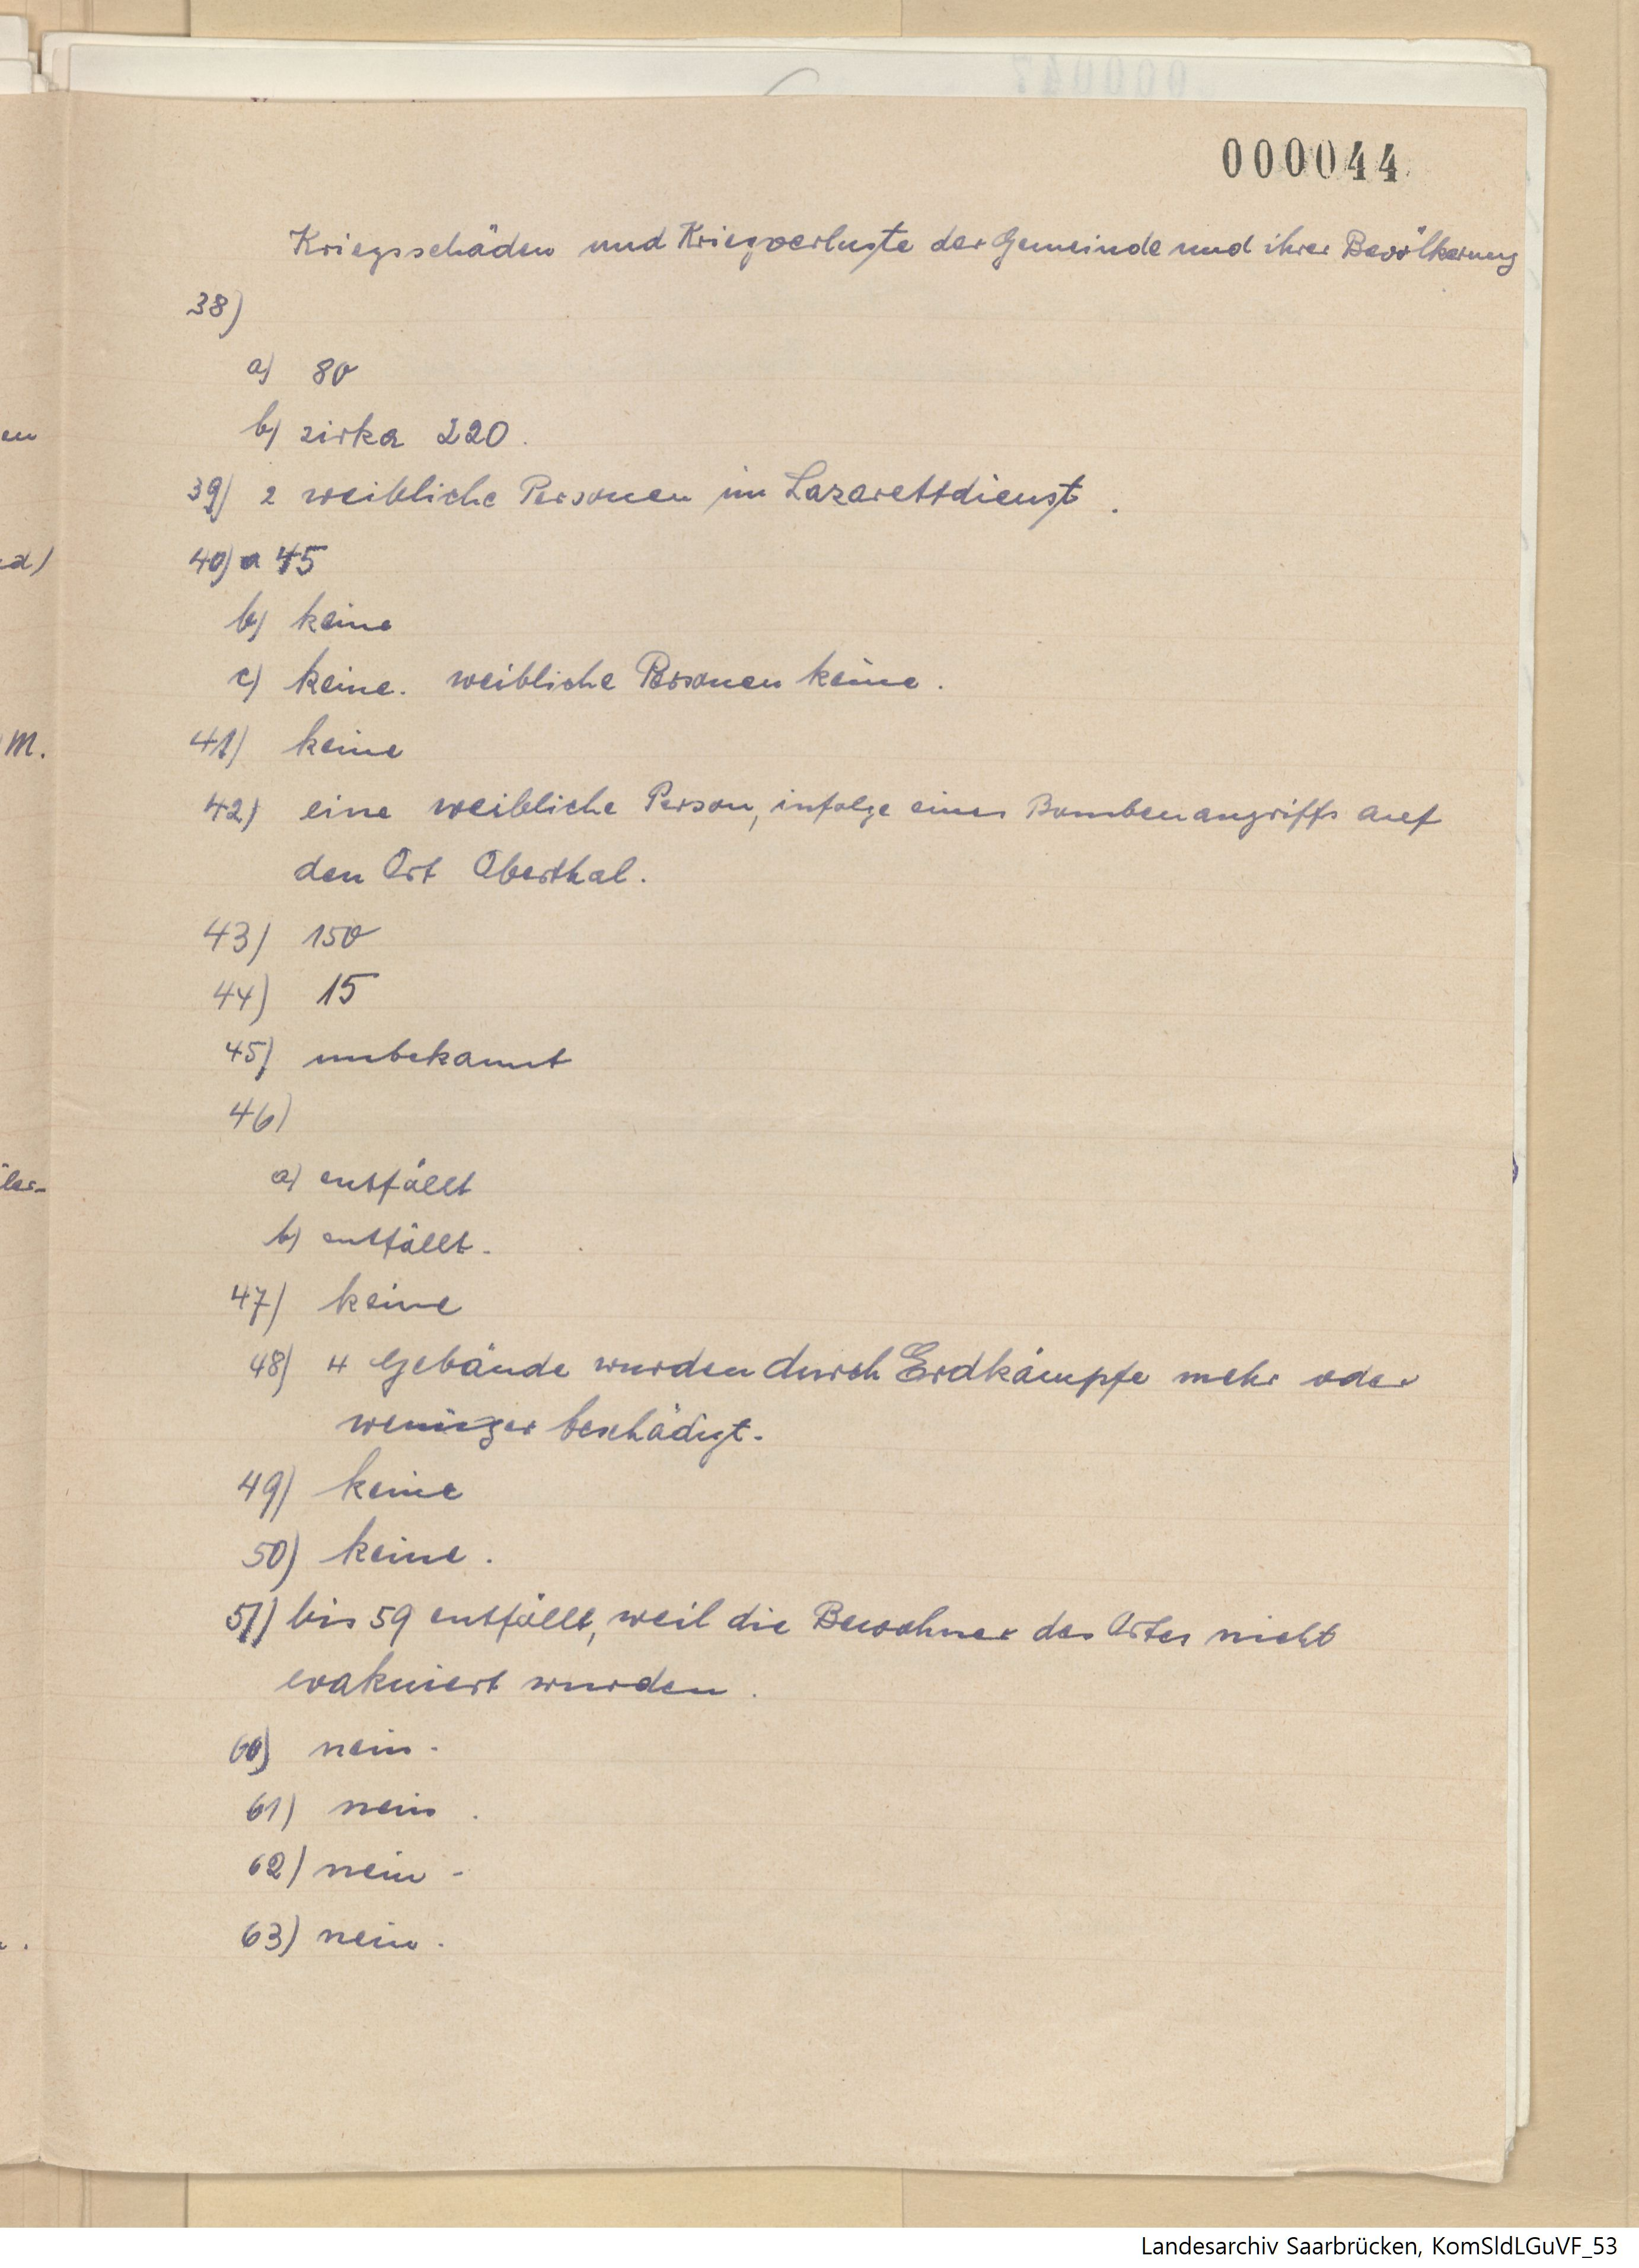 000044
Kriegsschäden und Kriegsverluste der Gemeinde und ihrer Bevölkerung
38)
a) 80
b) zirka 220.
39) 2 weibliche Personen im Lazarettdienst.
40) a 45
b) keine
c) keine. weibliche Personen keine.
41) keine
42) eine weibliche Person, infolge eines Bombenangriffs auf
den Ort Oberthal.
43) 150
44) 15
45) unbekannt
46)
a) entfällt
b) entfällt.
47) keine
48) 4 Gebäude wurden durch Erdkämpfe mehr oder
weniger beschädigt.
49) keine
50) keine.
51) bis 59 entfällt, weil die Bewohner des Ortes nicht
evakuiert wurden.
60) nein.
61) nein.
62) nein.
63) nein.
Landesarchiv Saarbrücken, KomSldLGuVF_53